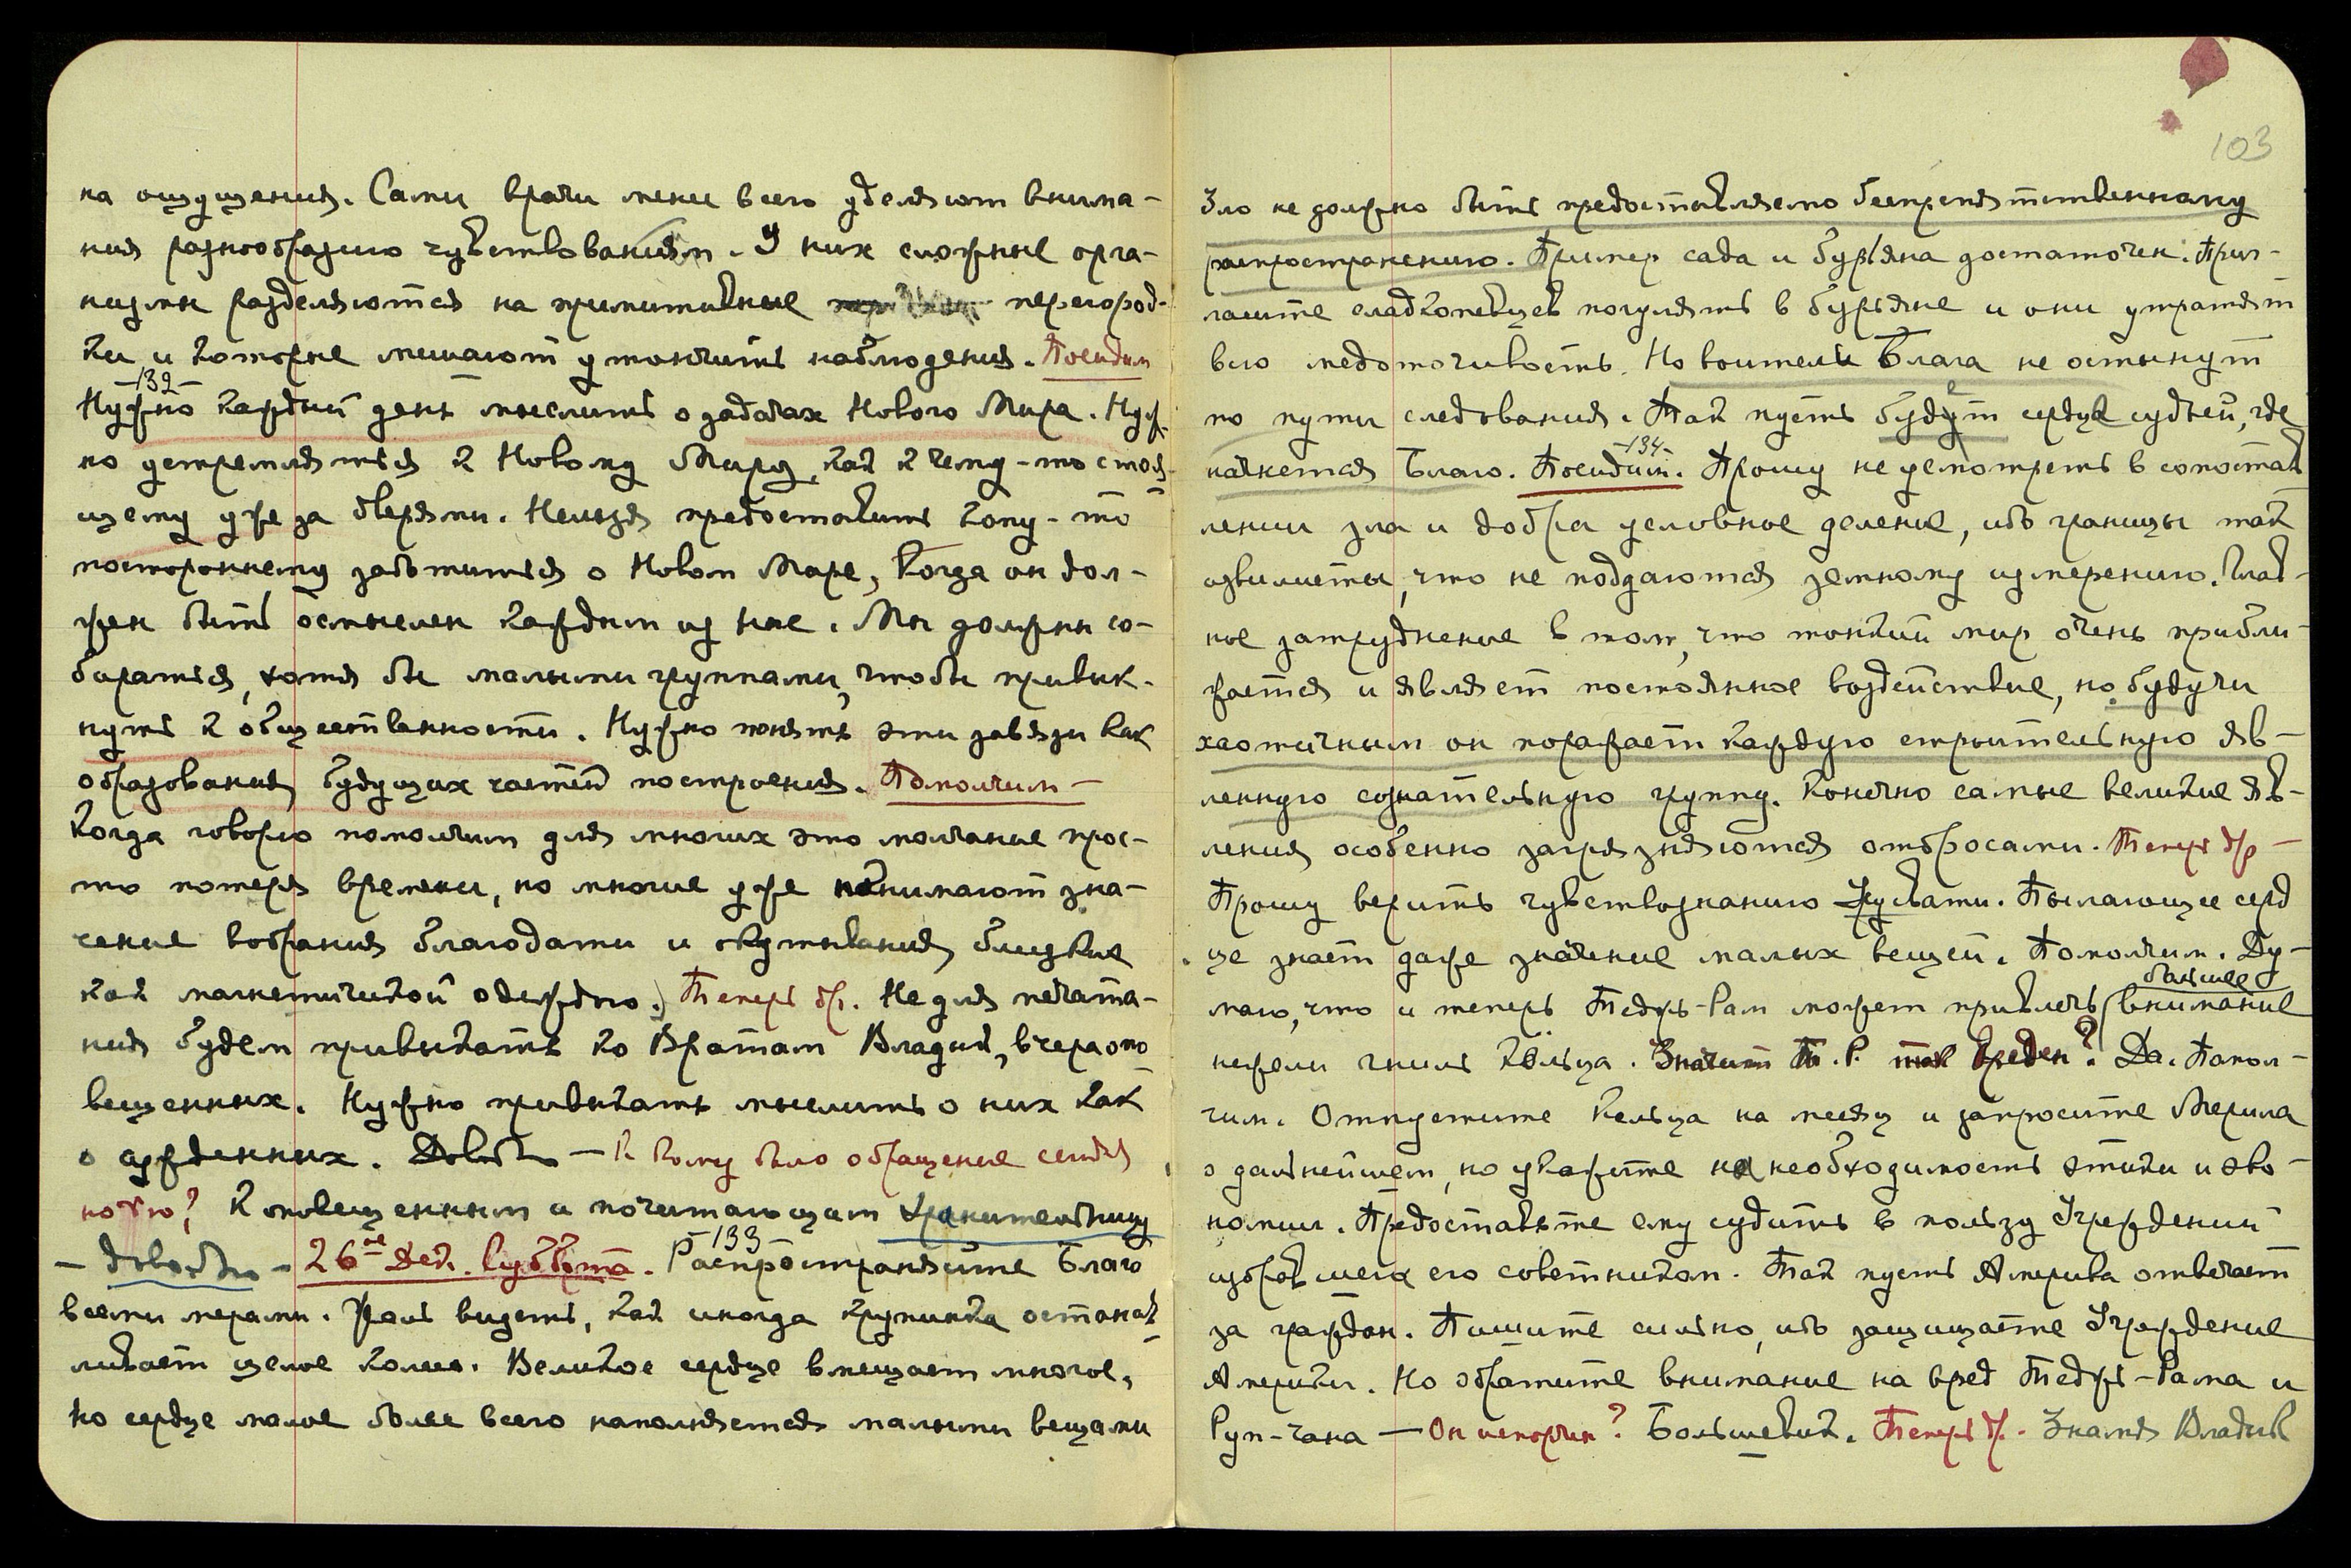 на ощущения. Сами врачи менее всего уделяют внима-
ния разнообразию чувствований. У них сложные орга-
низмы разделяются на примитивные перегород-
ки и которые мешают утончить наблюдения. Посидим
-132-
Нужно каждый день мыслить о задачах Нового Мира. Нуж-
но устремляться к Новому Миру, как к чему-то стоя-
щему уже за дверями. Нельзя предоставить кому-то
постороннему заботиться о Новом Мире, когда он дол-
жен быть осмыслен каждым из нас. Мы должны со-
бираться, хотя бы малыми группами, чтобы привык-
нуть к общественности. Нужно понять эти завязи как
образования будущих частей построения. Помолчим –
Когда говорю помолчим для многих это молчание прос-
то потеря времени, но многие уже понимают зна-
чение вобрания благодати и окутывания близких
как магнетической одеждою. Теперь др. Не для печата-
ния будем привыкать ко Вратам Владык, вчера опо-
вещенных. Нужно привыкать мыслить о них как
о сужденных. Довольно – К кому было обращение сегодня
ночью? К оповещенным и почитающим Хранительницу
– довольно – 26ое Дек. Суббота. Распространяйте Благо
-133-
всеми мерами. Жаль видеть, как иногда крупинка останав-
ливает целое колесо. Великое сердце вмещает многое,
но сердце малое более всего наполняется малыми вещами
103
Зло не должно быть предоставляемо беспрепятственному
распространению. Пример сада и бурьяна достаточен. Приг-
ласите сладкопевцев погулять в бурьяне и они утратят
всю медоточивость. Но воители Блага не остынут
по пути следования. Так пусть будет сердце судьей, где
начнется Благо. Посидим. -134- Прошу не усмотреть в сопостав-
лении зла и добра условное деление, ибо границы так
извилисты, что не поддаются земному измерению. Глав-
ное затруднение в том, что тонкий мир очень прибли-
жается и являет постоянное воздействие, но будучи
хаотичным он поражает каждую строительную яв-
ленную сознательную группу. Конечно самые великие яв-
ления особенно загрязняются отбросами. Теперь др –
Прошу верить чувствознанию Урусвати. Пылающее серд
це знает даже значение малых вещей. Помолчим. Ду-
маю, что и теперь Тедж-Рам может привлечь большее внимание
нежели гниль Кельца. Значит Т. Р. так вреден? Да. Помол-
чим. Отпустите Кельца на месяц и запросите Мерила
о дальнейшем, но укажите на необходимость этики и эко-
номии. Предоставьте ему судить в пользу Учреждений
избравшега его советником. Так пусть Америка отвечает
за граждан. Пишите сильно, ибо защищаете Учреждение
Америки. Но обратите внимание на вред Тедж-Рама и
Руп-Чана — Он испорчен? Большевик. Теперь др. Знамя Владык